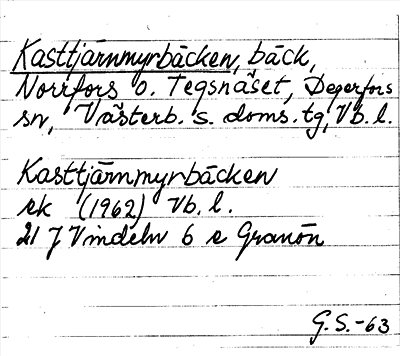 Kasttjärnmyrbäcken, bäck,
Norrfors o. Tegsnäset, Degerfors
sn, Västerb. s. doms. tg, Vb. l.
Kasttjärnmyrbäcken
ek (1962) Vb. l.
21 J Vindeln 6 e Granön
G. S. -63